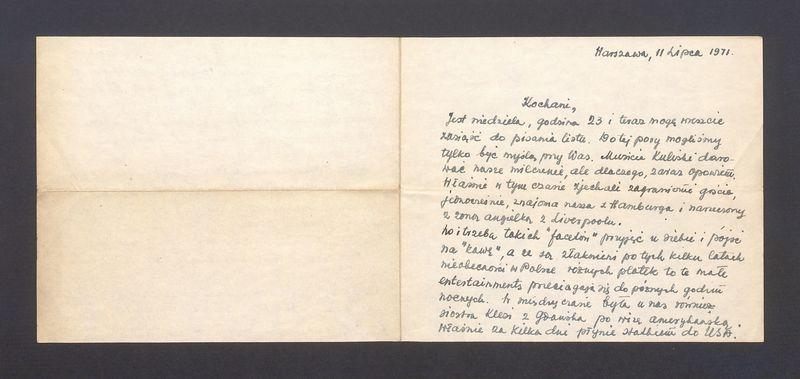 Warszawa, 11 Lipca 1971.
Kochani,
Jest niedziela, godzina 23 i teraz mogę wreszcie
zasiąść do pisania listu. Do tej pory mogliśmy
tylko być myślą przy Was. Musicie Kuliski daro-
wać nasze milczenie, ale dlaczego, zaraz opowiem.
Właśnie w tym czasie zjechali zagraniczni goście,
jednocześnie, znajoma nasza z Hamburga i narzeczony
z żoną angielką z Liverpoolu.
No i trzeba takich "facetów" przyjąć u siebie i pójść
na "kawę", a że są złaknieni po tych kilku latach
nieobecności w Polsce różnych plotek to te małe
entertainments przeciągają się do późnych godzin
nocnych. W międzyczasie była u nas również
siostra z Gdańska po wizę amerykańską
właśnie za kilka dni płynie statkiem do USA.